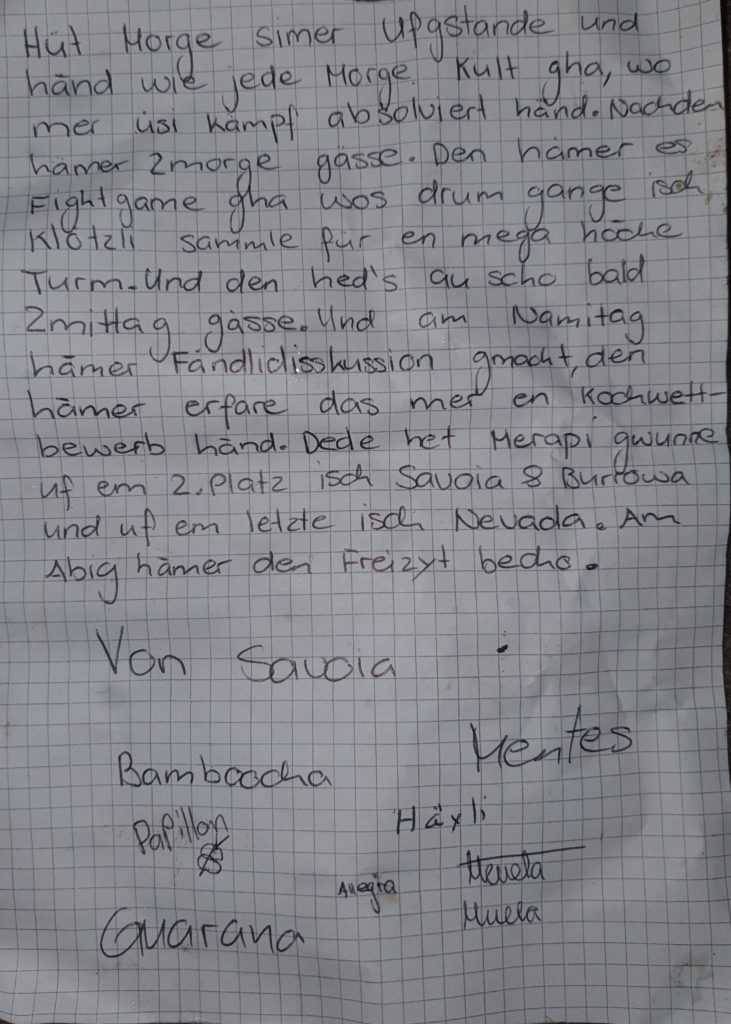 Hüt Morge simer ufgstande und
händ wie jede Morge Kult gha, wo
mer üsi Kämpf absolviert händ. Nachden
hämer Zmorge gässe. Den hämer es
Fightgame gha wos drum gange isch
Klötzli sammle für en mega höche
Turm. Und den hed's au scho bald
Zmittag gässe. Und am Namitag
hämer Fändlidisskussion gmacht, den
hämer erfare das mer en Kochwett-
bewerb händ. Dede het Merapi gwunne
uf em 2. Platz isch Savoia & Burfowa
und uf em letzte isch Nevada. Am
Abig hämer den Freizyt becho.
Von Savoia
Mentes
Bamboocha
Häxli
Papillon
Allegra
Guarana